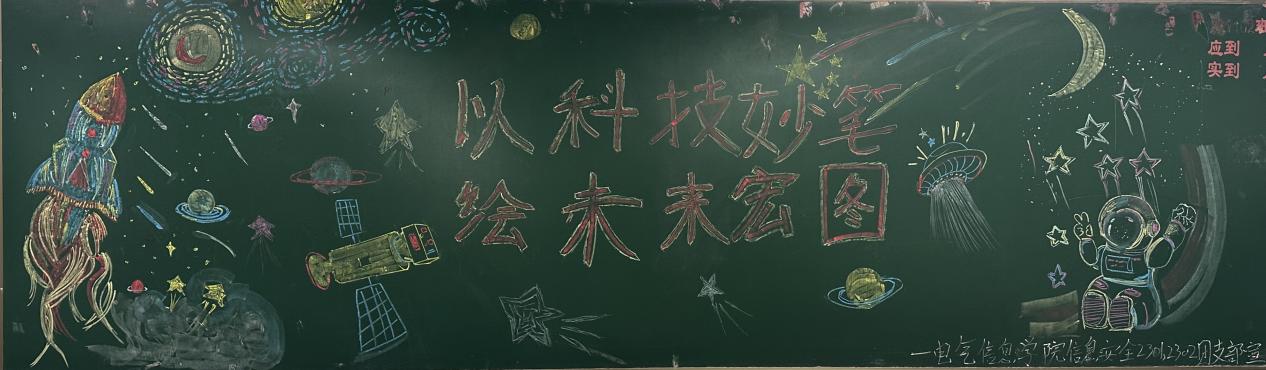 以科技妙笔
绘未来宏图
应到
实到
—电气信息学院信息安全23012302团支部宣